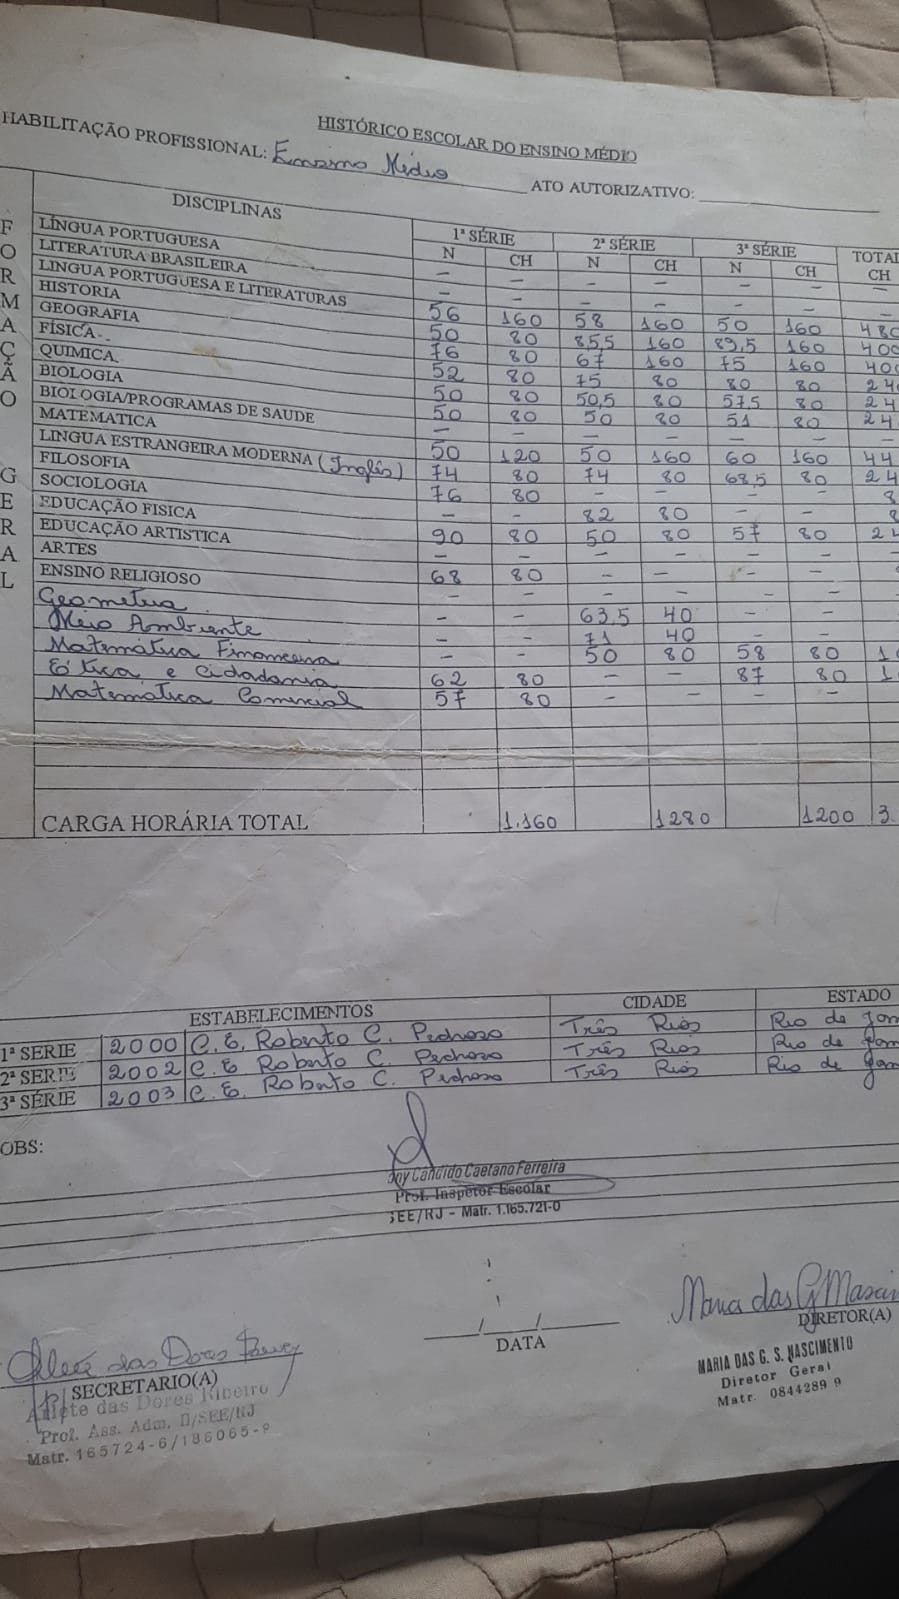 HISTÓRICO ESCOLAR DO ENSINO MÉDIO
HABILITAÇÃO PROFISSIONAL: Ensino Médio ATO AUTORIZATIVO:
FORMAÇÃO GERAL
DISCIPLINAS 1ª SÉRIE 2ª SÉRIE 3ª SÉRIE TOTAL
N CH N CH N CH CH
LÍNGUA PORTUGUESA - - - - - - -
LITERATURA BRASILEIRA - - - - - - -
LINGUA PORTUGUESA E LITERATURAS 56 160 58 160 50 160 480
HISTORIA 50 80 85,5 160 89,5 160 400
GEOGRAFIA 76 80 67 160 75 160 400
FÍSICA 52 80 75 80 80 80 24
QUIMICA 50 80 50,5 80 57,5 80 24
BIOLOGIA 50 80 50 80 51 80 24
BIOLOGIA/PROGRAMAS DE SAUDE - - - - - - -
MATEMATICA 50 120 50 160 60 160 44
LINGUA ESTRANGEIRA MODERNA (Inglês) 74 80 74 80 68,5 80 24
FILOSOFIA 76 80 - - - - 8
SOCIOLOGIA - - 82 80 - - 8
EDUCAÇÃO FISICA 90 80 50 80 57 80 24
EDUCAÇÃO ARTISTICA - - - - - -
ARTES 68 80 - - - -
ENSINO RELIGIOSO - - - - - -
Geometria - - 63,5 40 - -
Meio Ambiente - - 71 40 - -
Matemática Financeira - - 50 80 58 80 1
Ética e Cidadania 62 80 - - 87 80 1
Matemática Comercial 57 80 - - - -
CARGA HORÁRIA TOTAL 1.160 1280 1200 3.
ESTABELECIMENTOS CIDADE ESTADO
1ª SERIE 2000 C.E. Roberto C. Pedroso Três Rios Rio de Jan
2ª SERIE 2002 C.E Roberto C. Pedroso Três Rios Rio de Jan
3ª SÉRIE 2003 C.E. Roberto C. Pedroso Três Rios Rio de Jan
OBS:
Candido Caetano Ferreira
Prof. Inspetor Escolar
SEE/RJ - Matr. 1.165.721-0
Maria das G Mascin
DIRETOR(A)
MARIA DAS G. S. NASCIMENTO
Diretor Geral
Matr. 0844289 9
__/__/__
DATA
das Dores
SECRETARIO(A)
Arlete das Dores Ribeiro
Prof. Ass. Adm. D/SEE/RJ
Matr. 165724-6/186065-9